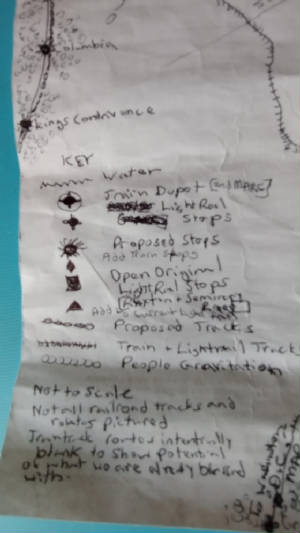 olumbia
Kings Contrivance
KEY
Water
Train Dupot [and MARC]
Light Rail
Stops
Proposed Stops
Add Train Stops
Open Original
Light Rail Stops
Add
to Current Light
Proposed Tracks
Train + Lightrail Track
People Gravitation
Not to Scale
Not all railroad tracks and
routes pictured
routes intentionally
blank to show potential
of what we are already blessed
with.